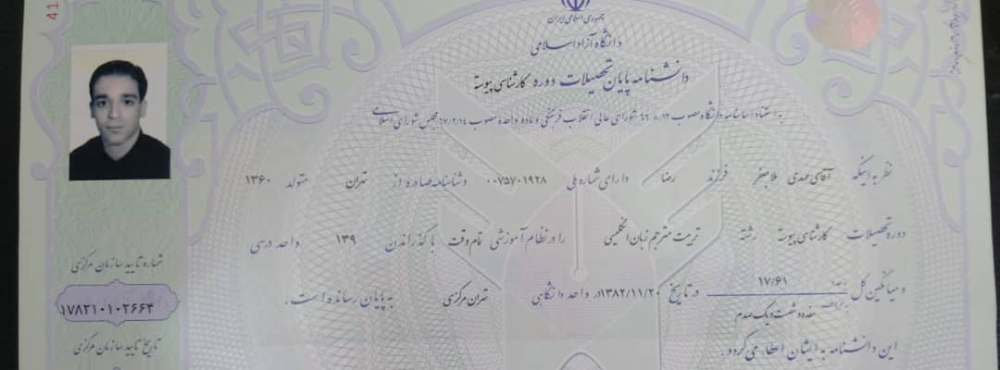 جمهوری اسلامی ایران
دانشگاه آزاد اسلامی
دانشنامه پایان تحصیلات دوره کارشناسی پیوسته
به استناد اساسنامه دانشگاه مصوب شورای عالی انقلاب فرهنگی و ماده واحده مصوب ۶۷/۲/۱۴ مجلس شورای اسلامی
نظر به اینکه آقای مهدی ملاجعفر فرزند رضا دارای شماره ملی ۰۰۷۵۷۰۱۹۲۸ و شناسنامه صادره از تهران متولد ۱۳۶۰
دوره تحصیلات کارشناسی پیوسته رشته تربیت مترجم زبان انگلیسی را در نظام آموزشی تمام وقت با گذراندن ۱۳۹ واحد درسی
و میانگین کل ۱۷/۶۱ در تاریخ ۱۳۸۲/۱۱/۲۰ در واحد دانشگاهی تهران مرکزی به پایان رسانده است.
هفده و شصت و یک صدم
این دانشنامه به ایشان اعطا می گردد.
شماره تایید سازمان مرکزی
۱۷۸۳۱۰۱۰۲۶۶۴
تاریخ تایید سازمان مرکزی